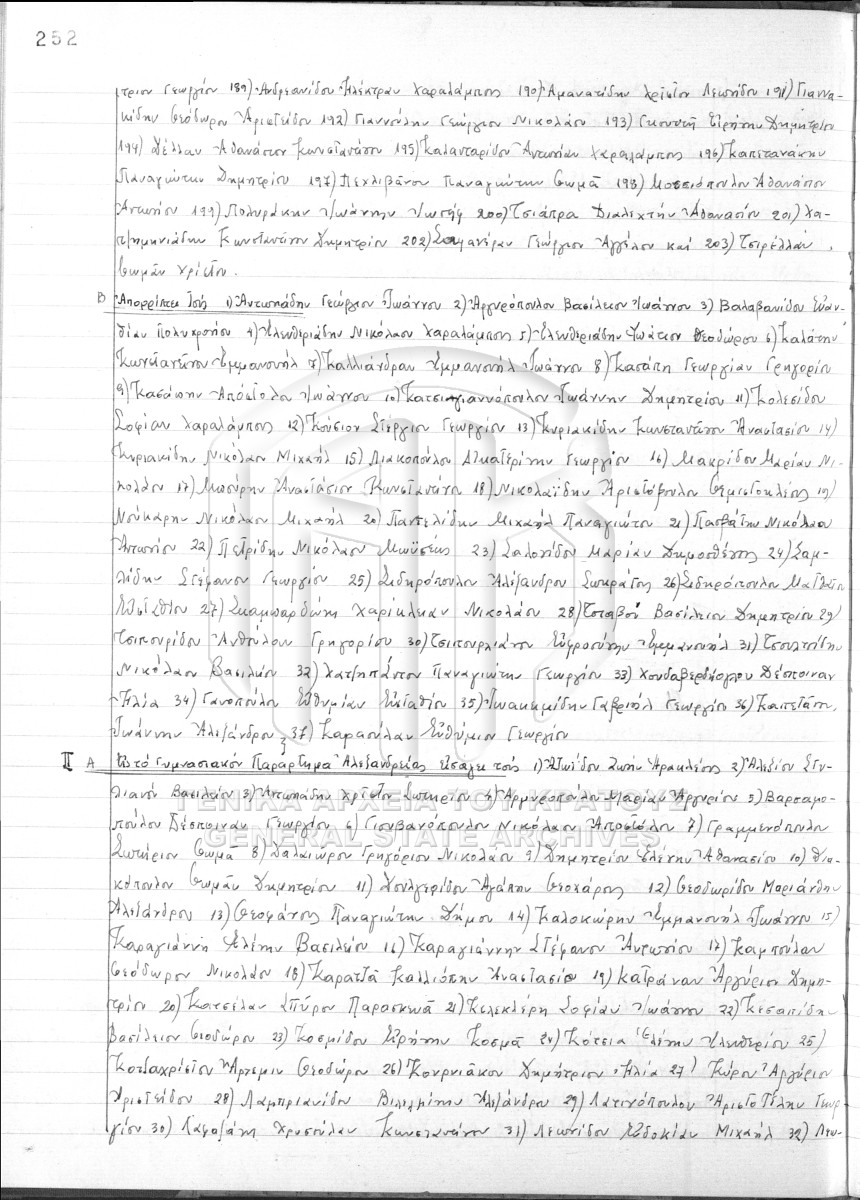 252
τριον Γεωργίου 189) Ἀνδρεανίδου Ἠλέκτραν Χαραλάμπους 190) Ἀμανατίδην Χρῖστον Λεωνίδου 191) Γιαννα-
κίδην Θεόδωρον Ἀριστείδου 192) Γιαννούλην Γεώργιον Νικολάου 193) Εἰρήνην Δημητρίου
194) Δέλλαν Ἀθανάσιον Κωνσταντίνου 195) Καλανταρίδου Ἀντωνίαν Χαραλάμπους 196) Καπετανάκην
Παναγιώτην Δημητρίου 197) Πεχλιβάνον Παναγιώτην Θωμᾶ 198) Ἀθανάσιον
Ἀντωνίου 199) Πολυράκην Ἰωάννην Ἰωσήφ 200) Τσιάπρα Διαλεχτήν Ἀθανασίου 201) Χα-
τζημηνιάδην Κωνσταντῖνον Δημητρίου 202) Γεώργιον Ἀγγέλου καί 203) Τσιρέλλαν
Θωμᾶν Χρίστου.
Β Ἀπορρίπτει τούς 1) Ἀντωνιάδην Γεώργιον Ἰωάννου 2) Ἀργυρόπουλον Βασίλειον Ἰωάννου 3) Βαλαβανίδου Εὐαν-
θίαν Πολυχρονίου 4) Ἐλευθεριάδην Νικόλαον Χαραλάμπους 5) Ἐλευθεριάδην Φώτιον Θεοδώρου 6) Καλάτην
Κωνσταντῖνον Ἐμμανουήλ 7) Καλλιάνδραν Ἐμμανουήλ Ἰωάννου 8) Κασάπη Γεωργίαν Γρηγορίου
9) Κασάπην Ἀπόστολον Ἰωάννου 10) Κατσιαγιαννόπουλον Ἰωάννην Δημητρίου 11) Κολεσίδου
Σοφίαν Χαραλάμπους 12) Κούσιον Στέργιον Γεωργίου 13) Κυριακίδην Κωνσταντῖνον Ἀναστασίου 14)
Κυριακίδην Νικόλαον Μιχαήλ 15) Λιακοπούλου Αἰκατερίνην Γεωργίου 16) Μακρίδου Μαρίαν Νι-
κολάου 17) Μπούρην Ἀναστάσιον Κωνσταντίνου 18) Νικολαΐδην Ἀριστόβουλον Θεμιστοκλέους 19)
Νούκαρην Νικόλαον Μιχαήλ 20) Παντελίδην Μιχαήλ Παναγιώτου 21) Πασβάτην Νικόλαον
Ἀντωνίου 22) Πετρίδην Νικόλαον Μωϋσέως 23) Σαλονίδου Μαρίαν Δημοσθένους 24) Σαμ-
λίδην Στέφανον Γεωργίου 25) Σιδηρόπουλον Ἀλέξανδρον Σωκράτους 26) Σιδηρόπουλον Ματθαῖον
Εὐσταθίου 27) Σκαμπαρδώνη Χαρίκλειαν Νικολάου 28) Βασίλειον Δημητρίου 29)
Τσικουρίδου Ἀνθούλαν Γρηγορίου 30) Τσιτουρλιάνου Εὐφροσύνην Ἐμμανουήλ 31) Τσουλτσίδην
Νικόλαον Βασιλείου 32) Χατζηπάντον Παναγιώτην Γεωργίου 33) Χουδαβερδόγλου Δέσποιναν
Ἠλία 34) Γανοπούλου Εὐθυμίαν Εὐσταθίου 35) Ἰωακειμίδην Γαβριήλ Γεωργίου 36) Καπετάν
Ἰωάννην Ἀλεξάνδρου 37) Καρασούλαν Εὐθύμιον Γεωργίου
ΙΙ Α Εἰς τό Γυμνασιακόν Παράρτημα Ἀλεξανδρείας εἰσάγει τούς 1) Ζωήν Ἡρακλέους 2) Ἀλεξίου Στυ-
λιανόν Βασιλείου 3) Ἀντωνιάδην Χρῖστον Σωτηρίου 4) Ἀργυροπούλου Μαρίαν Ἀργυρίου 5) Βαρσαμο-
πούλου Δέσποιναν Γεωργίου 6) Γιοβανόπουλον Νικόλαον Ἀποστόλου 7) Γραμμενόπουλον
Σωτήριον Θωμᾶ 8) Δαλαιώρον Γρηγόριον Νικολάου 9) Δημητρίου Ἑλένην Ἀθανασίου 10) Δια-
κόπουλον Θωμᾶν Δημητρίου 11) Δουλγερίδου Ἀγάπην Θεοχάρους 12) Θεοδωρίδου Μαριάνθην
Ἀλεξάνδρου 13) Θεοφάνους Παναγιώτην Δήμου 14) Καλοκώρην Ἐμμανουήλ Ἰωάννου 15)
Καραγιάννη Ἑλένην Βασιλείου 16) Καραγιάννην Στέφανον Ἀντωνίου 17) Καμπούλαν
Θεόδωρον Νικολάου 18) Καρατζᾶ Καλλιόπην Ἀναστασίου 19) Κατράναν Ἀργύριον Δημη-
τρίου 20) Κατσέλαν Σπῦρον Παρασκευᾶ 21) Κελεκλέρη Σοφίαν Ἰωάννου 22) Κεσαπίδην
Βασίλειον Θεοδώρου 23) Κοσμίδου Εἰρήνην Κοσμᾶ 24) Κότσια Ἑλένην Ἐλευθερίου 25)
Κοτζαχρίστου Ἄρτεμιν Θεοδώρου 26) Κουρνιάκον Δημήτριον Ἠλία 27) Κύρου Ἀργύριον
Ἀριστείδου 28) Λαμπριανίδου Βιλελμίνην Ἀλεξάνδρου 29) Λατινόπουλον Ἀριστοτέλην Γεωρ-
γίου 30) Χρυσούλαν Κωνσταντίνου 31) Λεωνίδου Εὐδοκίαν Μιχαήλ 32) Λεω-
ΓΕΝΙΚΑ ΑΡΧΕΙΑ ΤΟΥ ΚΡΑΤΟΥΣ
GENERAL STATE ARCHIVES